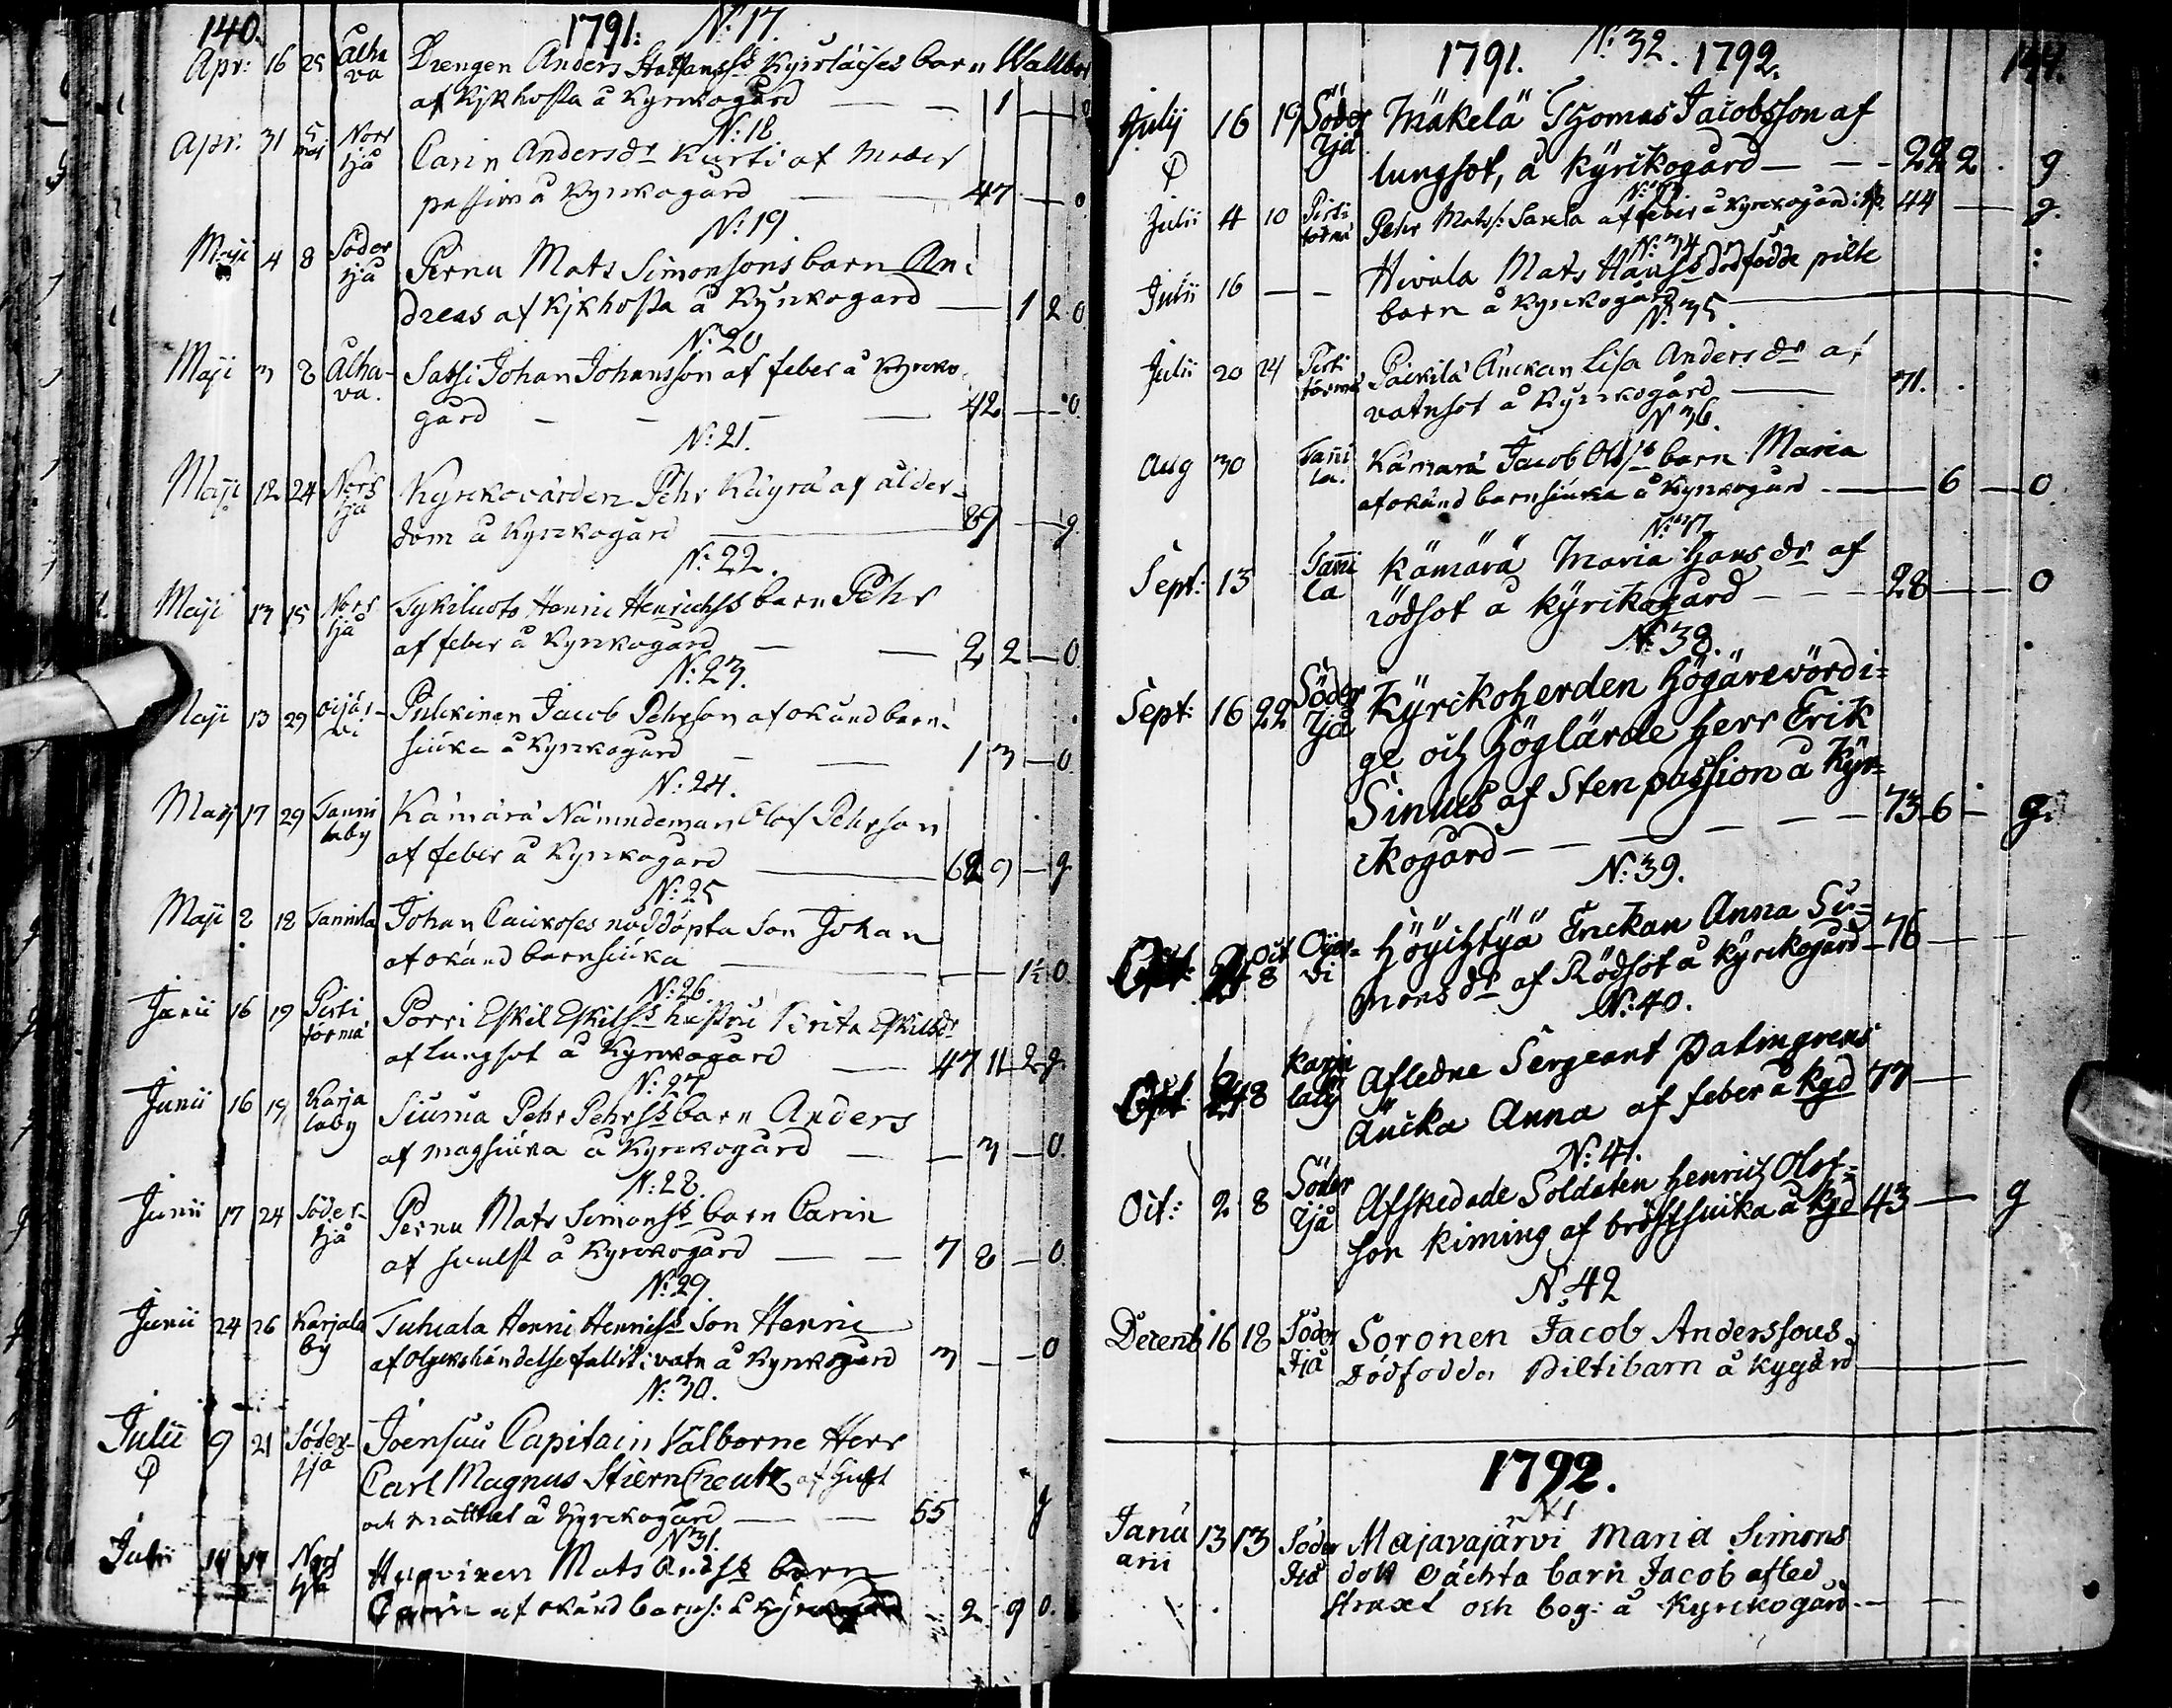 140. 1791. N:17.
Apr: 16 25 Alhava Drengen Anders barn Wallbor
af Kikhosta å Kyrckogård — — 1 —
N:18
Apr. 31 5 maj Norrtjå Carin Andersdr Kurki af
passion å Kyrckogård — 47. — 0
N:19
Maji 4 8 Södertjå Pernu Mats Simonsons barn An-
dreas af Kikhosta å Kyrckogård — 1 2 0
N:20
Maji 3 8 Alhava. Sassi Johan Johansson af feber å Kyrcko-
gård — — — 42 — 0.
N:21.
Maji 12 24 Norrtjå Kyrckovärden Pehr Käyrä af ålder-
dom å Kyrckogård — 89 — g.
N:22.
Maji 13 15 Norrtjå Tykiluoto Henric Henrichss barn Pehr
af feber å Kyrckogård — — 2 2 — 0.
N:23.
Maji 13 29 Oijärvi Pulckinen Jacob Pehrson af okänd barn-
siuka å Kyrckogård — — 1 3 — 0.
N:24.
Maij 17 29 Tannilaby Kämärä Nämndeman Olof Pehrson
af feber å Kyrckogård — 62 9 — g.
N:25
Maji 2 12 Tannila Johan Cauroses nöddöpta Son Johan
af okänd barnsiuka — — 1½ 0.
N:26.
Junii 16 19 Pirttitörmä Porri Eskil Eskilss hustru Brita Eskilsdr
af lungsot å Kyrckogård — 47 11 2 g.
N:27
Junii 16 19 Karjalaby Siurua Pehr Pehrss barn Anders
af magsiuka å Kyrckogård — — 3 — 0.
N:28.
Junii 17 24 Södertjå Pernu Mats Simonss barn Carin
af svulst å Kyrckogård — — 7 8 — 0.
N:29.
Junii 24 26 Karjalaby Tuhkala Henric Henricss Son Henric
af olyckshändelse fallit i vatn å Kyrckogård 3 — — 0
N:30.
Julii 9 21 Södertjå Joensuu Capitain Välborne Herr
Carl Magnus StiernCreutz af
och å Kyrckogård — — 55 g
N31.
Julii 14 17 Norrtjå Huovinen Mats Andss barn
Carin af okänd barns: å Kyrckogård 2 9 0.
1791. N:32. 1792. 141.
Julij 16 19 Södertjå Mäkelä Thomas Jacobsson af
lungsot, å Kyrckogård — — 22 2. g
Julii 4 10 Pirttitörmä Pehr Mats: Saxela af feber å Kyrckogård 44 — g.
N:34
Julii 16 — — Hivala Mats Hanss dödfödde pilte
barn å Kyrckogård —
N:35.
Julii 20 24 Pirttitörmä Päckilä Änckan Lisa Andersdr af
vatnsot å Kyrckogård — 71.
N 36.
Aug 30 Tannila. Kämärä Jacob Olss barn Maria
af okänd barnsiuka å Kyrckogård — 6 — 0.
N:37
Sept: 13 Tannila Kämärä Maria Hansdr af
rödsot å Kyrckogård — — — 28 — 0
N:38.
Sept: 16 22 Södertjå Kyrckoherden Högärewördi-
ge och Höglärde Herr Erik
Sinius af Sten passion å Kyr-
ckogård — — — — — 73 6 — g.
N:39.
Oct 8 Oijärvi Höyihtyä Enckan Anna Si-
monsdr af Rödsot å Kyrckogård — 76 —
N:40.
8 Karjalaby Afledne Sergeant Palmgrens
Äncka Anna af feber å Kgd 77 —
N:41.
Oct: 2 8 Södertjå Afskedade Soldaten Henrich Olof-
son Kiming af bröstsiuka å Kgd 43 — g
N:42
Decemb 16 18 Södertjå Soronen Jacob Anderssons
Dödfödda Piltibarn å Kygård —
1792.
N:1
Januarii 13 13 Södertjå Majavajärvi Maria Simons
dott oächta barn Jacob afled
straxt och beg: å Kyrckogård. — —